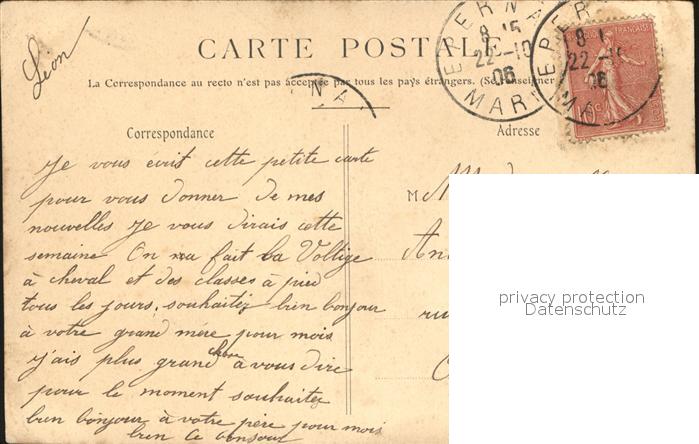 Léon
CARTE POSTALE
La Correspondance au recto n'est pas acceptée par tous les pays étrangers. (Se renseigner
EPERNA
8 15
22 -10
06
MAR
EPER
8
22
06
MA
NA
10
Correspondance
Adresse
Je vous ecrit cette petite carte
pour vous donner de mes
nouvelles Je vous dirais cette
semaine On na fait La Voltige
à cheval et des classes à pied
tous les jours, souhaitez bien bonjour
à votre grand mére pour mois
j'ais plus grand chose à vous dire
pour le moment souhaitez
bien bonjour à votre père pour mois
bien Le bonsoir
M
An
ru
privacy protection
Datenschutz